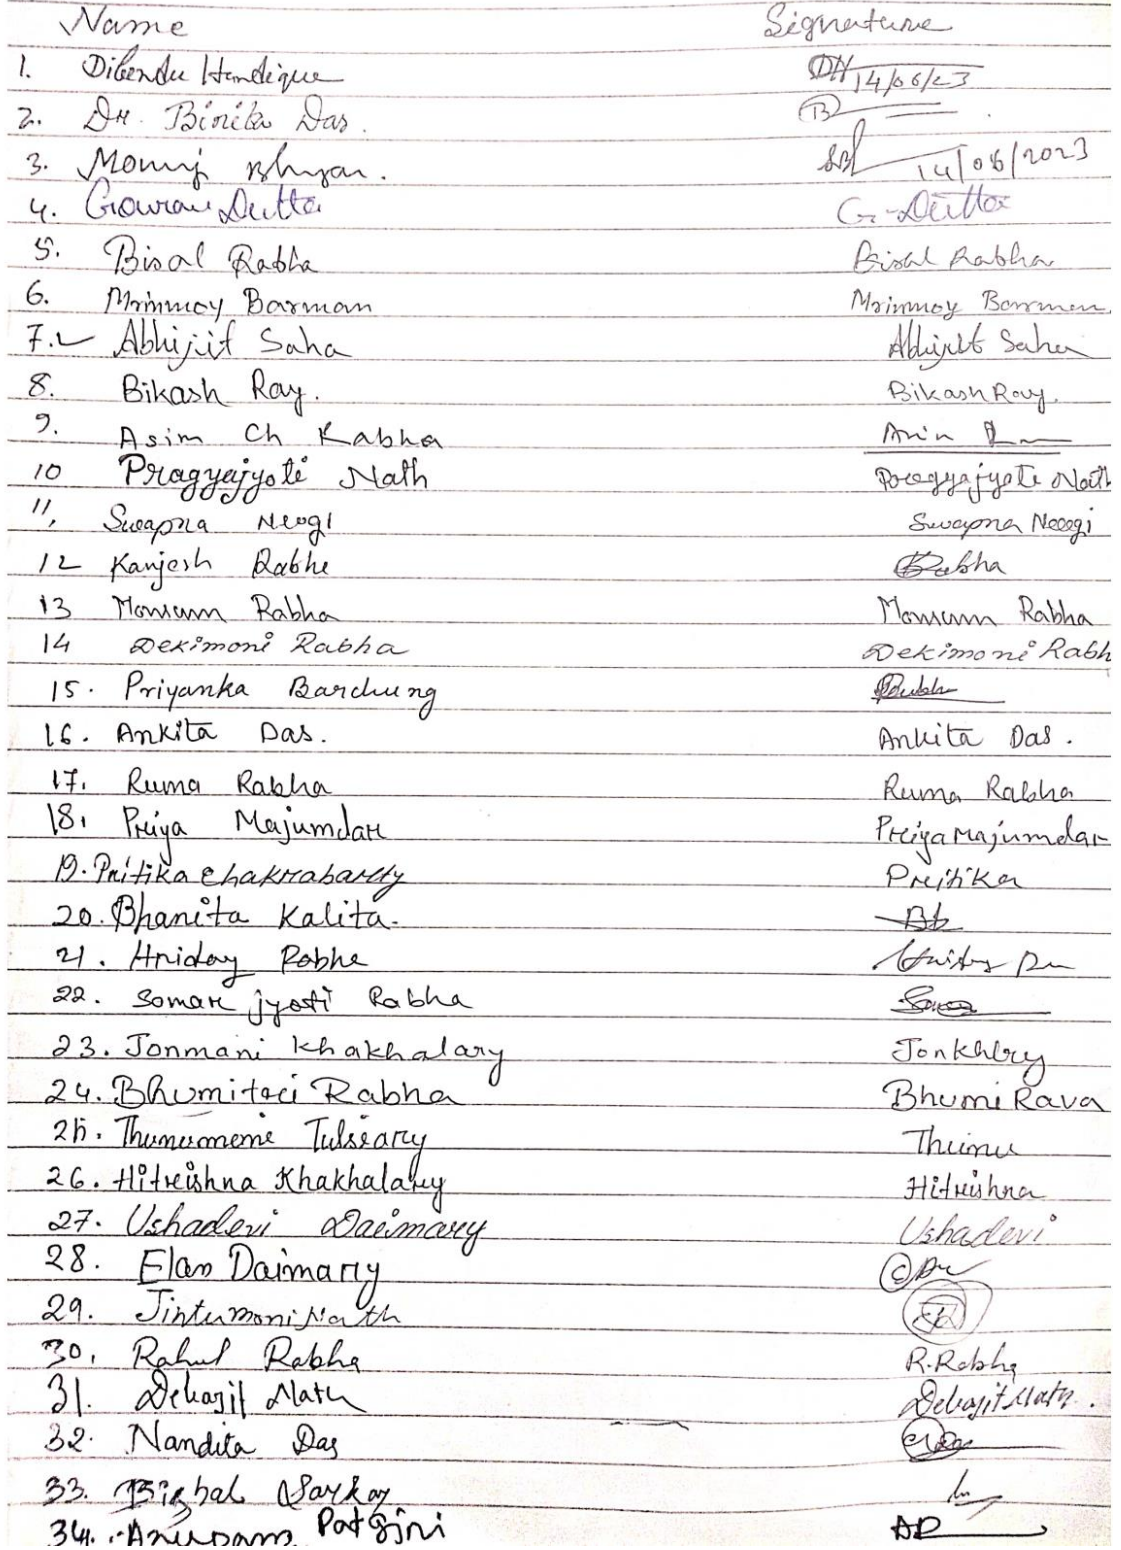 Name Signature
1. Dibendu Handique DH 14/06/23
2. Dr. Binita Das. B
3. 14/06/2023
4. Gourav Dutta G-Dutta
5. Bisal Rabha Bisal Rabha
6. Mrinmoy Barman Mrinmoy Barman
7. Abhijit Saha Abhijit Saha
8. Bikash Ray. Bikash Ray.
9. Asim Ch Rabha Asim
10 Pragyajyoti Nath Pragyajyoti Nath
11, Swapna Neogi Swapna Neogi
12 Kanjesh Rabha Rabha
13 Mousum Rabha Mousum Rabha
14 Dekimoni Rabha Dekimoni Rabh
15. Priyanka Barchung
16. Ankita Das. Ankita Das.
17. Ruma Rabha Ruma Rabha
18. Priya Majumdar Priya Majumdar
19. Pritika Chakrabarty Pritika
20. Bhanita Kalita. Bk
21. Hriday Rabha Hriday
22. Somar jyoti Rabha
23. Jonmani Khakhalary Jonkhlry
24. Bhumitaci Rabha Bhumi Rava
25. Thunumoni Tulsiary Thunu
26. Hitrishna Khakhalary Hitrishna
27. Ushadevi Daimary Ushadevi
28. Elan Daimary
29. Jintumoni Nath
30. Rahul Rabha R.Rabha
31. Debajit Nath Debajit Nath.
32. Nandita Das
33. Sarkar
34. Anupam Patgiri AP